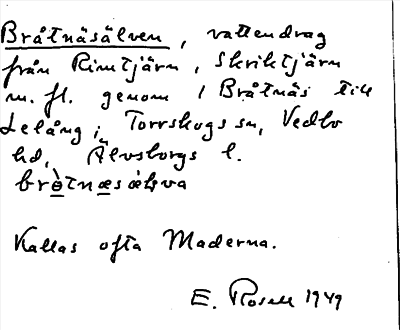 Bråtnäsälven, vattendrag
från Rimtjärn, Skriktjärn
m. fl. genom / Bråtnäs till
Lelång i Torrskogs sn, Vedbo
hd, Älvsborgs l.
Kallas ofta Maderna.
E. Rosell 1949